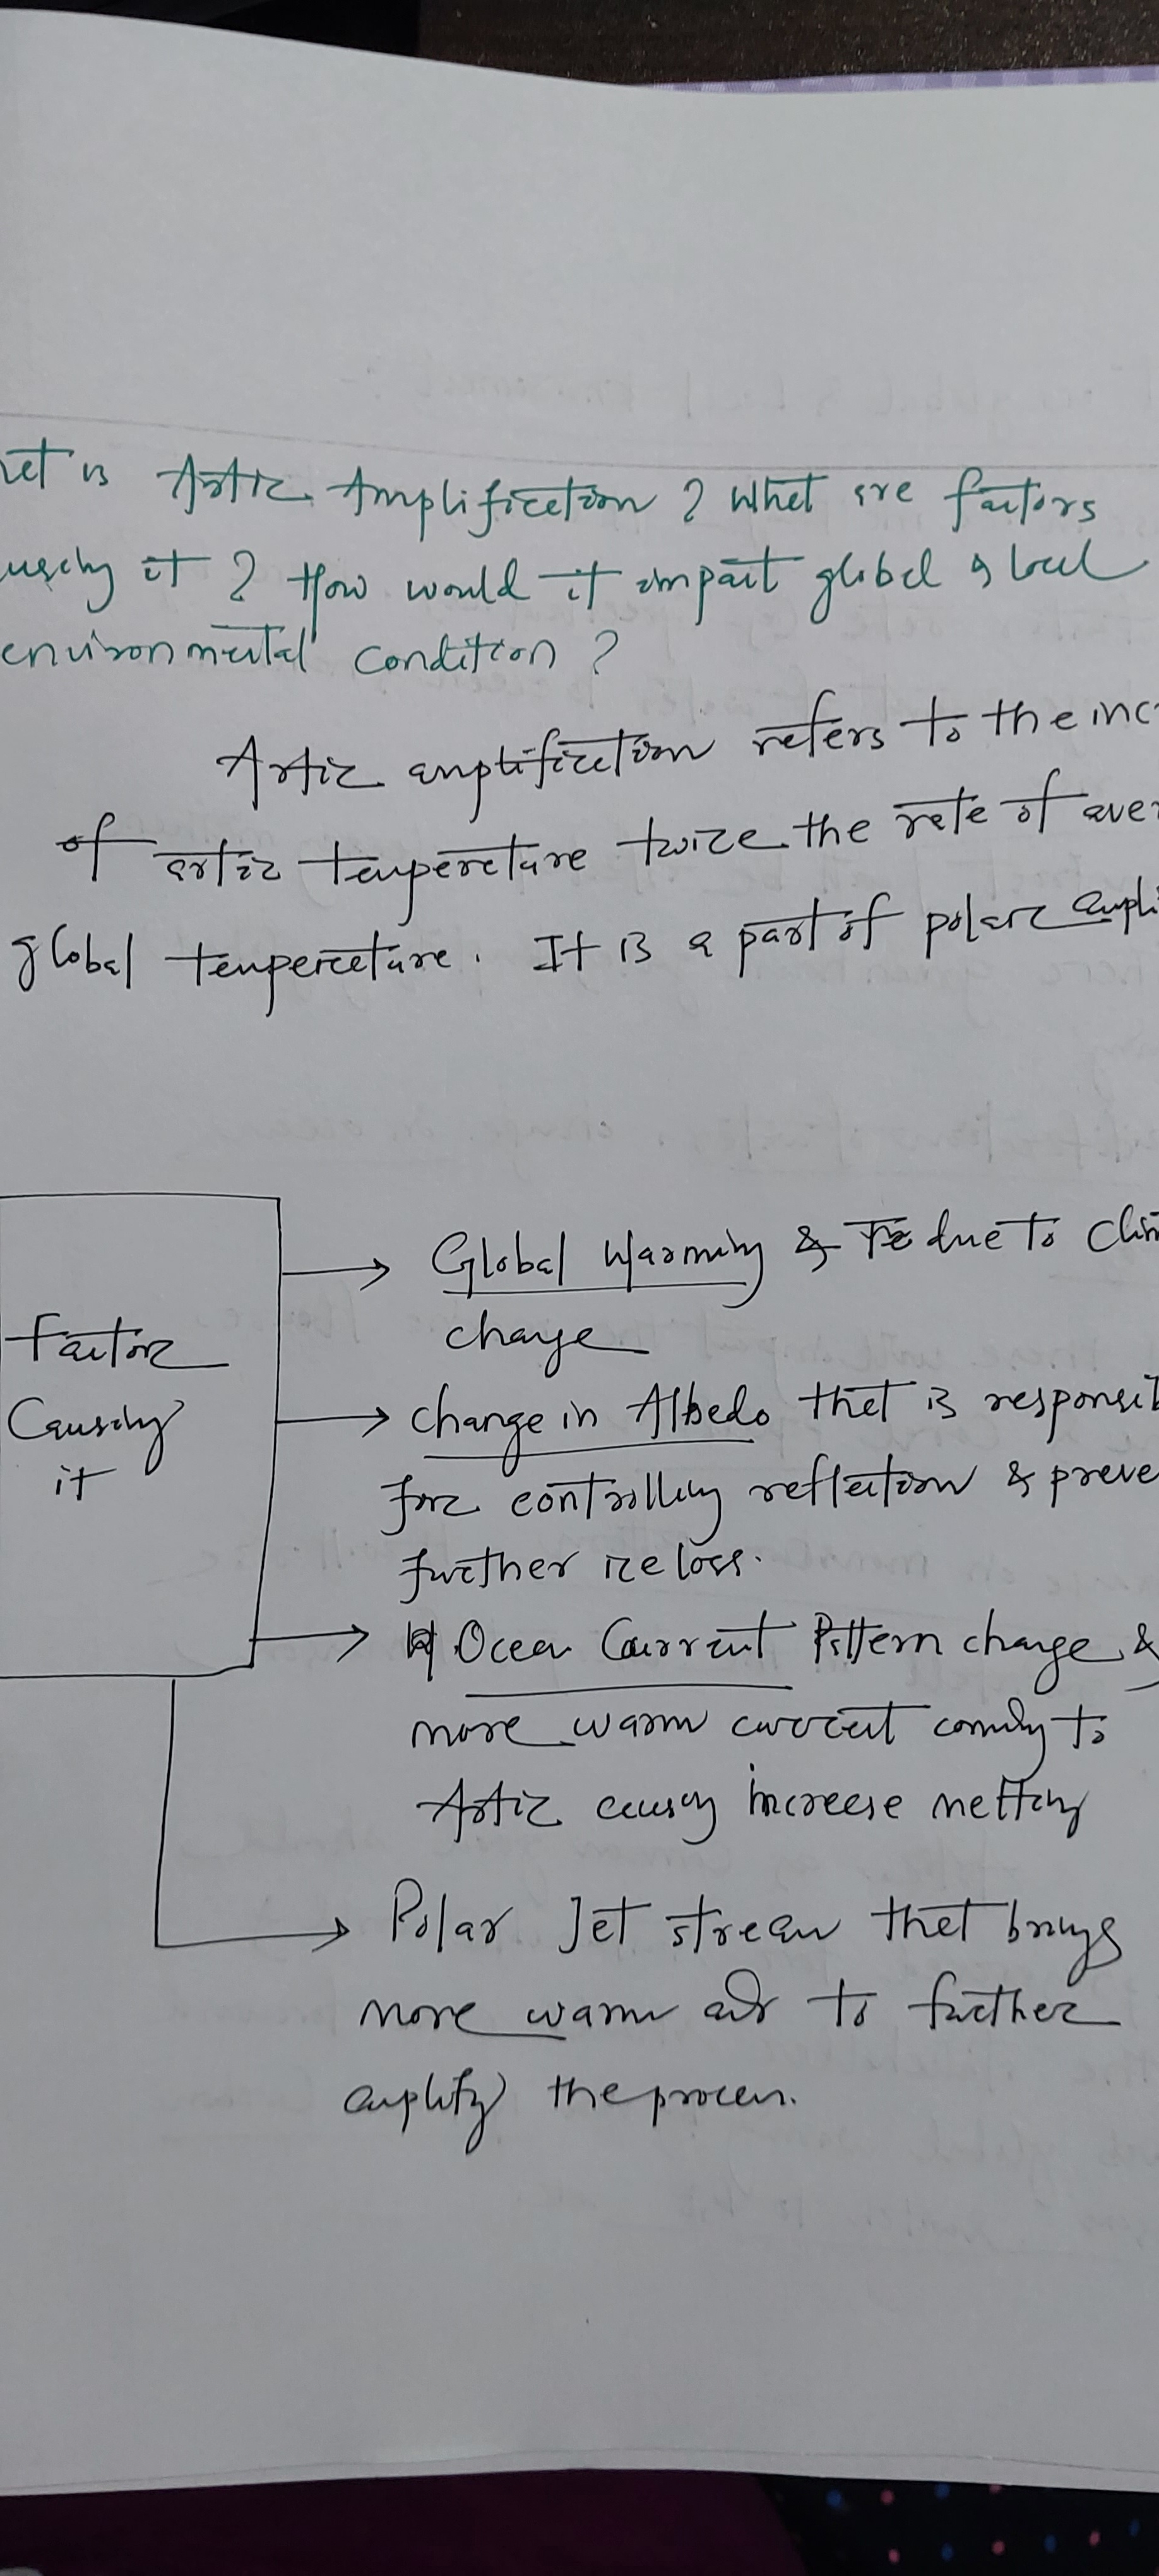 is Artic Amplification ? What are factors
it ? How would it impact global & local
environmental condition ?
Artic amplification refers to the inc
of artic temperature twice the rate of ave
global temperature. It is a part of polar ampli
Global Warming & due to Clim
change
Factor
Causing
it
change in Albedo that is responsib
for controlling reflection & preve
further ice loss.
Ocean Current Pattern change &
more warm current coming to
Artic causing increase melting
Polar Jet stream that brings
more warm air to further
amplify the process.